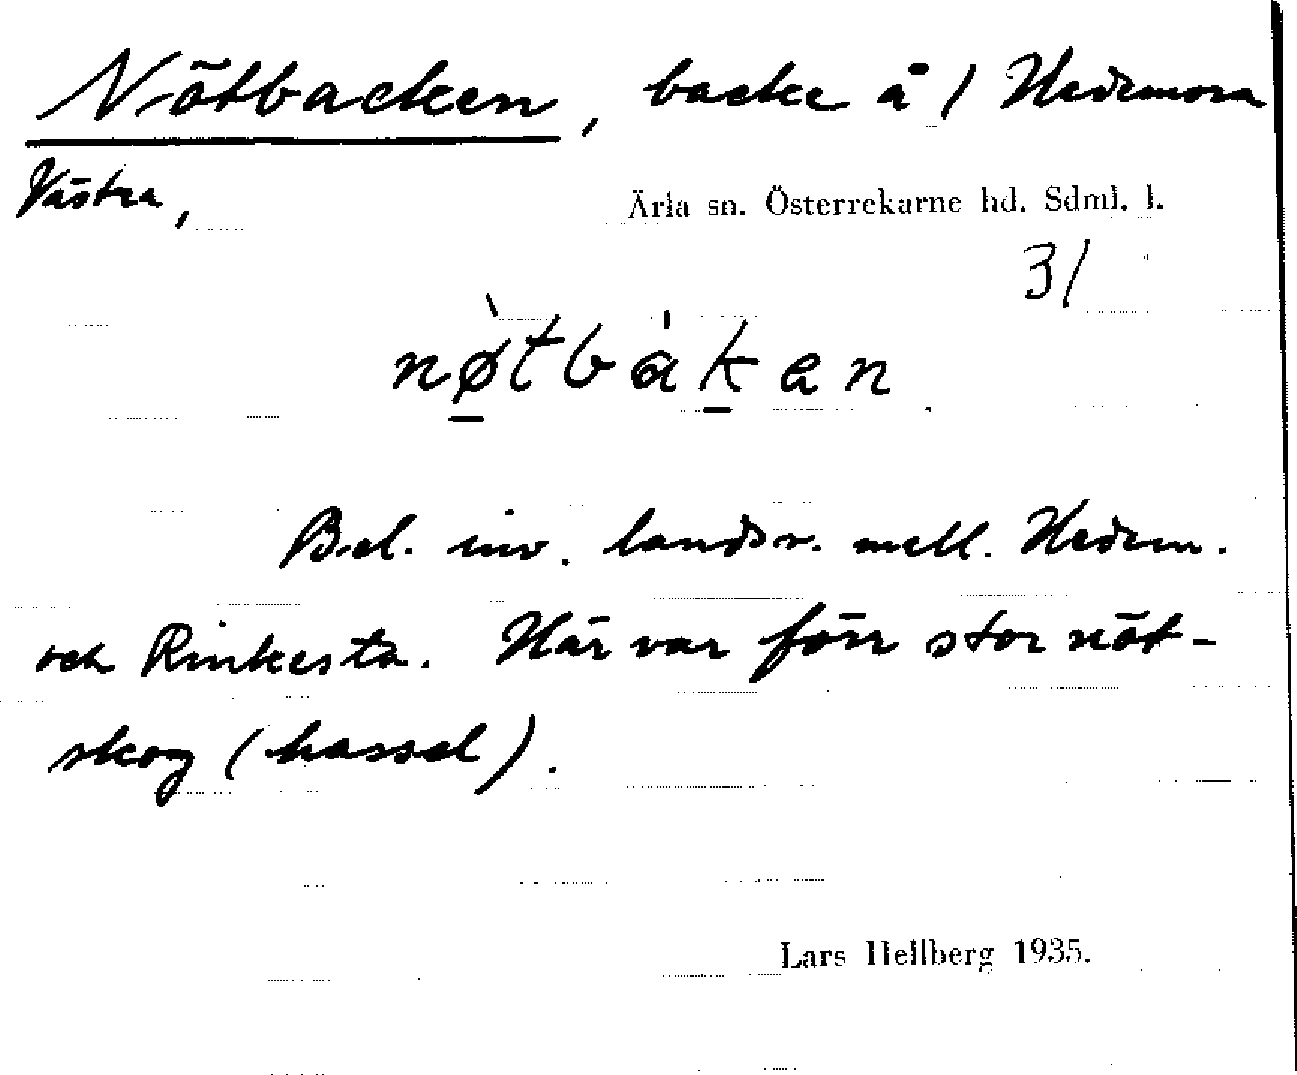 Nötbacken, backe å 1 Hedemora
Västra,
Ärla sn. Österrekarne hd. Sdml. l.
31
nø̀tbàkan
Bel. inv. landsv. mell. Hedem.
och Rinkesta. Här var förr stor nöt-
skog (hassel).
Lars Hellberg 1935.